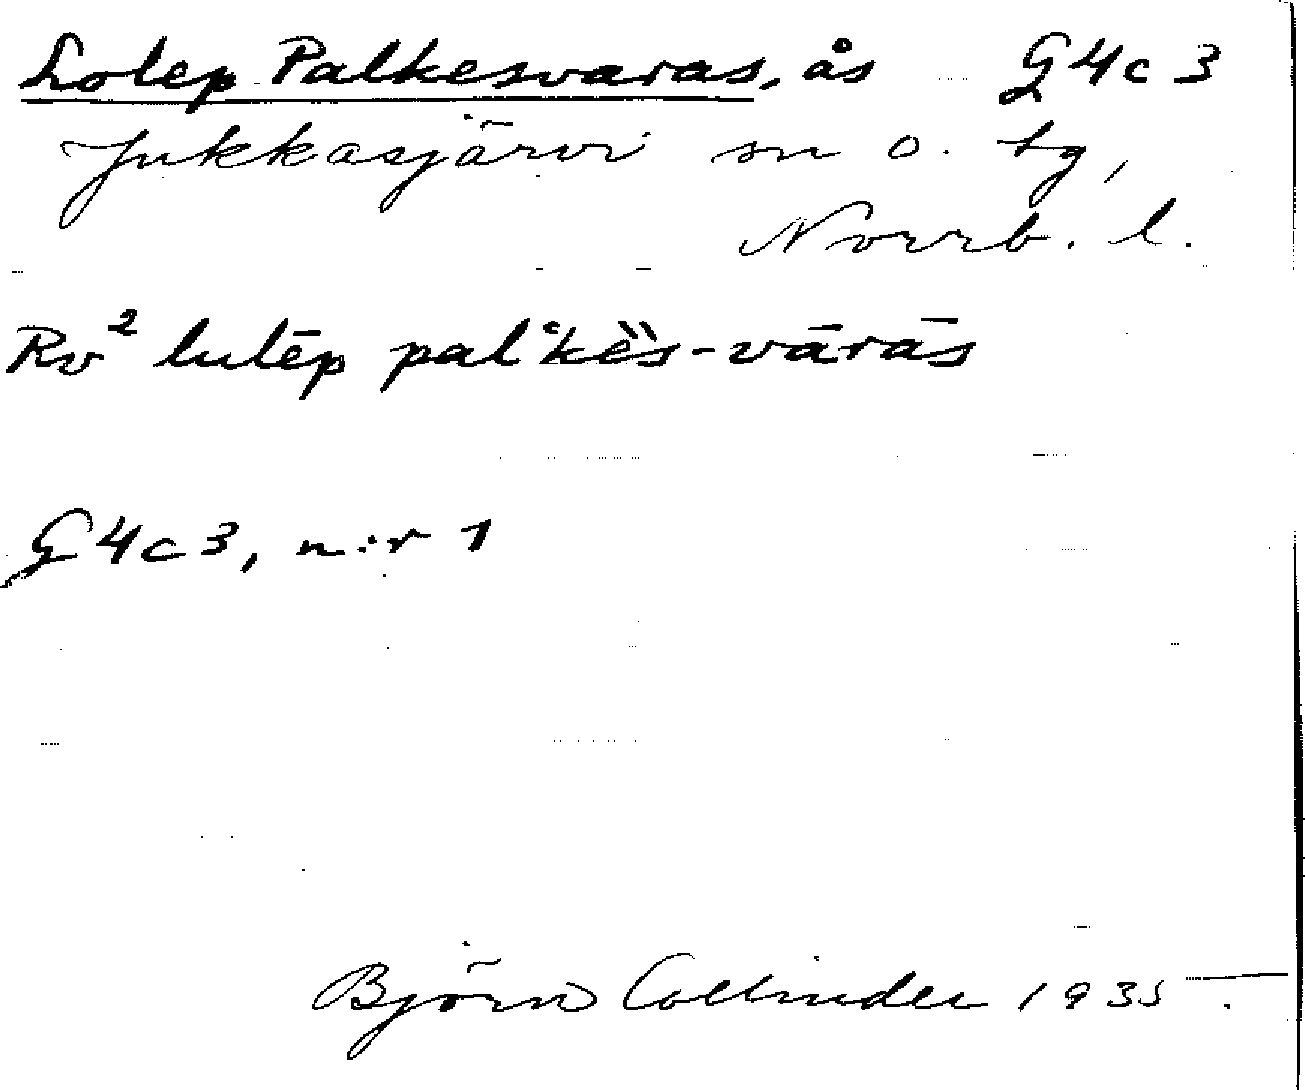 Lolep Palkesvaras, ås G4c3
Jukkasjärvi sn o. tg,
Norrb. l.
Rv² lulēp pal'kès-vārās
G4c3, n:r 1
Björn Collinder 1935.